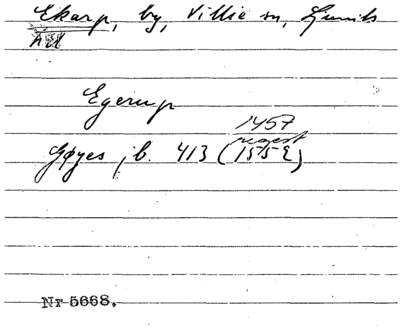 Ekarp, by, Villie sn, Ljunits
hd
Egerup
1457
regest
Gøyes jb. 413 (1552)
Nr 5668.